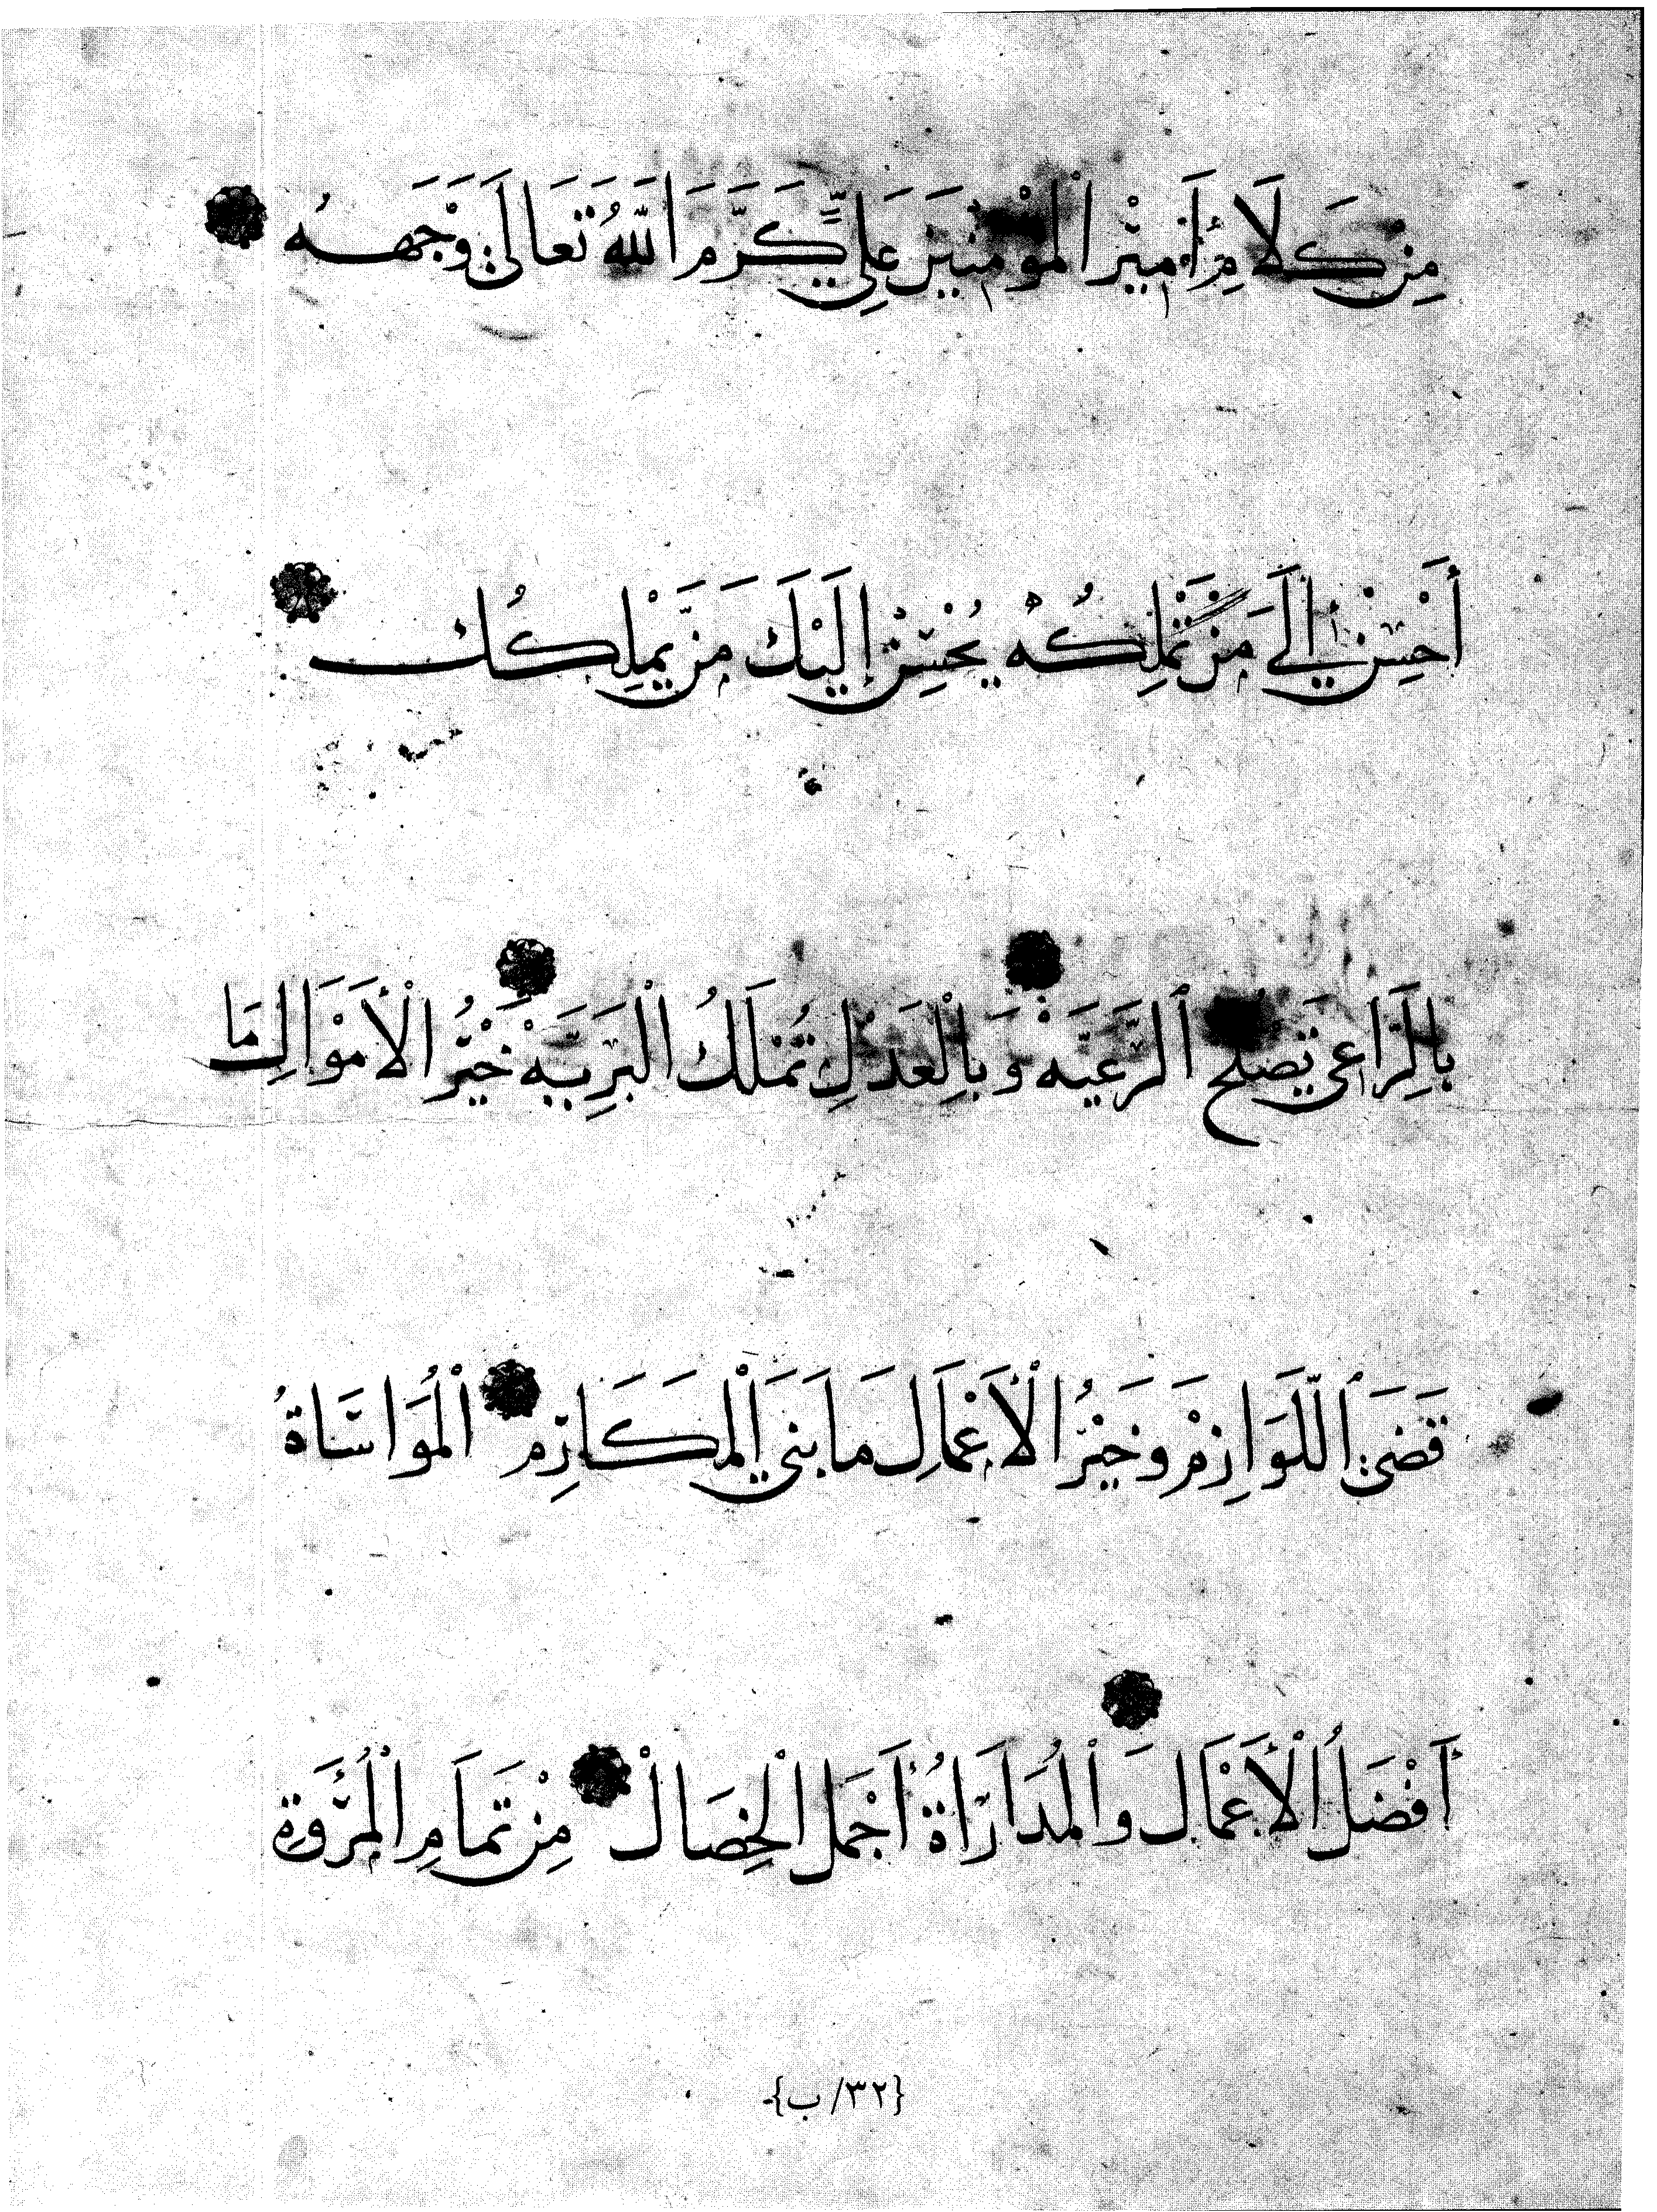 مِنْ كَلَامِ أَمِيْرِ الْمُؤْمِنِيْنَ عَلِيٍّ كَرَّمَ اللّٰهُ تَعَالَىٰ وَجْهَهُ
أَحْسِنْ إِلَى مَنْ تَمْلِكُهُ يُحْسِنْ إِلَيْكَ مَنْ يَمْلِكُكَ
بِالرَّاعِي تَصْلُحُ الرَّعِيَّه وَبِالْعَدْلِ تُمْلَكُ الْبَرِيَّه خَيْرُ الْأَمْوَالِ مَا
قَضَى اللَّوَازِمْ وَخَيْرُ الْأَعْمَالِ مَا بَنَى الْمَكَارِمْ الْمُوَاسَاةُ
أَفْضَلُ الْأَعْمَالْ وَالْمُدَارَاةُ أَجْمَلُ الْخِصَالْ مِنْ تَمَامِ الْمُرُؤَةِ
{٣٢/ب}